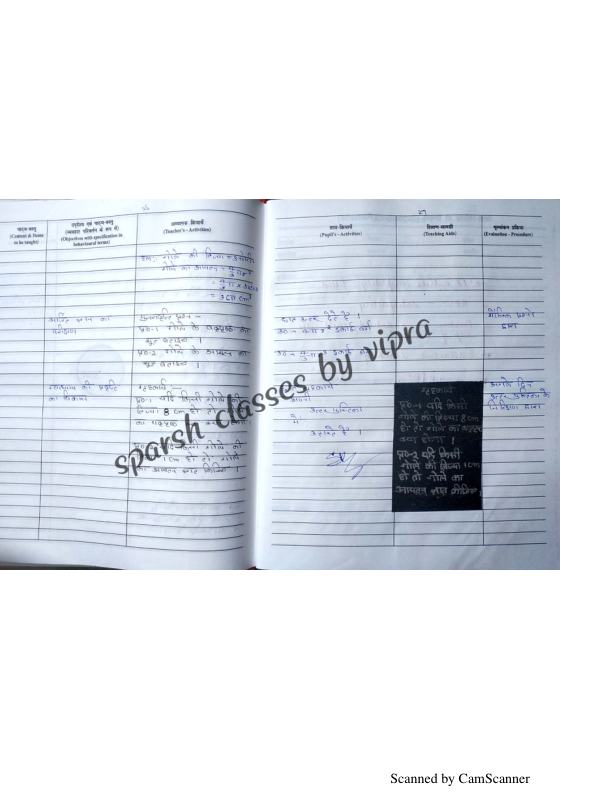 पाठ्य-वस्तु
(Content & Items
to be taught)
उद्देश्य एवं पाठ्य-वस्तु
(व्यवहार परिवर्तन के रूप में)
(Objectives with specification in
behavioural terms)
अध्यापक क्रियायें
(Teacher's - Activities)
गोले की त्रिज्या
गोले का आयतन =
= 36π cm³
अर्जित ज्ञान का
परीक्षण
प्र०-1 गोले के वक्रपृष्ठ का
सूत्र बताइये ।
प्र०-2 गोले के आयतन का
सूत्र बताइये ।
गृहकार्य :-
प्र०-1 यदि किसी गोले की
त्रिज्या 8 cm हो तो
का वक्रपृष्ठ
यदि किसी गोले
1cm हो तो गोले
का आयतन ज्ञात कीजिये ।
47
छात्र-क्रियायें
(Pupil's - Activities)
शिक्षण-सामग्री
(Teaching Aids)
मूल्यांकन प्रक्रिया
(Evaluation - Procedure)
छात्र उत्तर देते हैं ।
उ०- 4π r² इकाई वर्ग
मौखिक प्रश्नों
द्वारा
गृहकार्य
प्र०-1 यदि किसी
गोले की त्रिज्या 8 cm
हो तो गोले का वक्रपृष्ठ
क्या होगा ।
प्र०-2 यदि किसी
गोले की त्रिज्या 1cm
हो तो गोले का
आयतन ज्ञात कीजिये ।
अगले दिन
उत्तर पुस्तिका के
निरीक्षण द्वारा
sparsh classes by vipra
Scanned by CamScanner